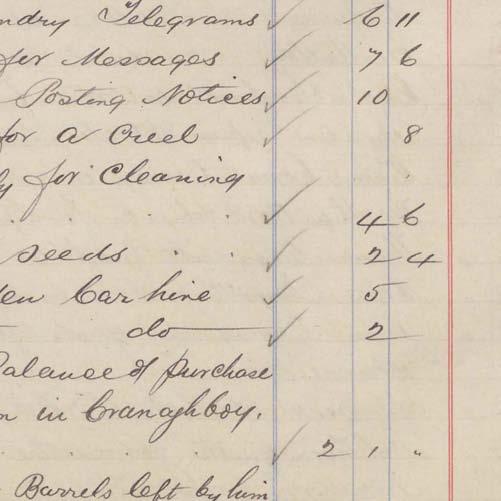 ndry Telegrams ✓ 6 11
for Messages ✓ 7 6
Posting Notices ✓ 10
for a Creel ✓ 8
ly for Cleaning
✓ 4 6
seeds . . ✓ 2 4
den Car hire ✓ 5
do ✓ 2
Balance of purchase
n in Cranaghboy.
✓ 2 1 "
Barrels left by him